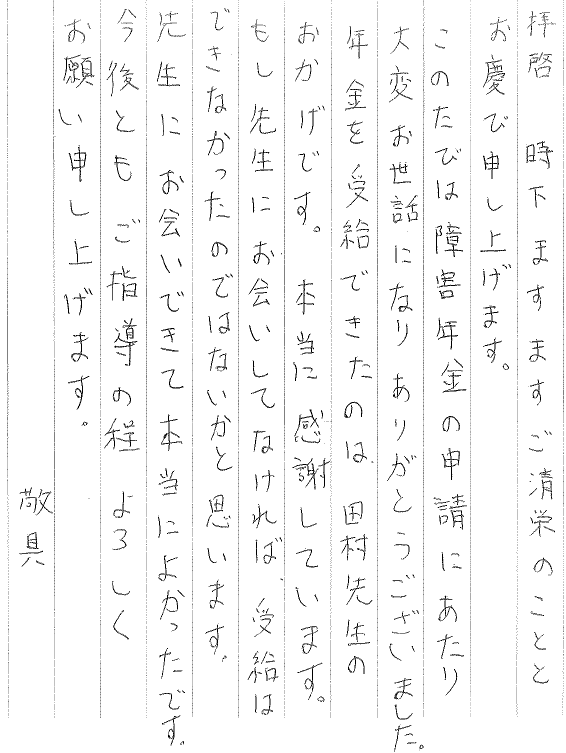 拝啓 時下ますますご清栄のことと
お慶び申し上げます。
このたびは障害年金の申請にあたり
大変お世話になりありがとうございました。
年金を受給できたのは 田村先生の
おかげです。本当に感謝しています。
もし先生にお会いしてなければ、受給は
できなかったのではないかと思います。
先生にお会いできて本当によかったです。
今後とも ご指導の程 よろしく
お願い申し上げます。
敬具